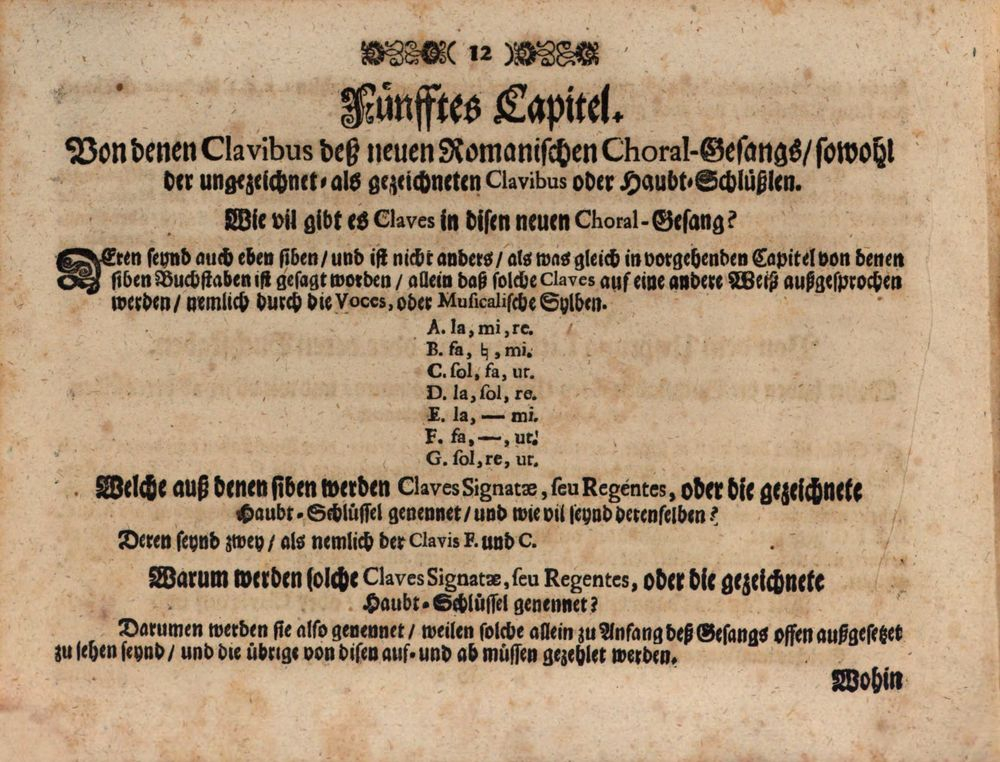 ( 12 )
Fünfftes Capitel.
Von denen Clavibus deß neuen Romanischen Choral-Gesangs/ sowohl
der ungezeichnet- als gezeichneten Clavibus oder Haubt-Schlüßlen.
Wie vil gibt es Claves in disen neuen Choral-Gesang?
DEren seynd auch eben siben/ und ist nicht anders/ als was gleich in vorgehenden Capitel von denen
siben Buchstaben ist gesagt worden/ allein daß solche Claves auf eine andere Weiß außgesprochen
werden/ nemlich durch die Voces, oder Musicalische Sylben.
A. la, mi, re.
B. fa, ♮, mi.
C. sol, fa, ut.
D. la, sol, re.
E. la, — mi.
F. fa, —, ut.
G. sol, re, ut.
Welche auß denen siben werden Claves Signatæ, seu Regentes, oder die gezeichnete
Haubt-Schlüssel genennet/ und wie vil seynd derenselben?
Deren seynd zwey/ als nemlich der Clavis F. und C.
Warum werden solche Claves Signatæ, seu Regentes, oder die gezeichnete
Haubt-Schlüssel genennet?
Darumen werden sie also genennet/ weilen solche allein zu Anfang deß Gesangs offen außgesetzet
zu sehen seynd/ und die übrige von disen auf- und ab müssen gezehlet werden.
Wohin